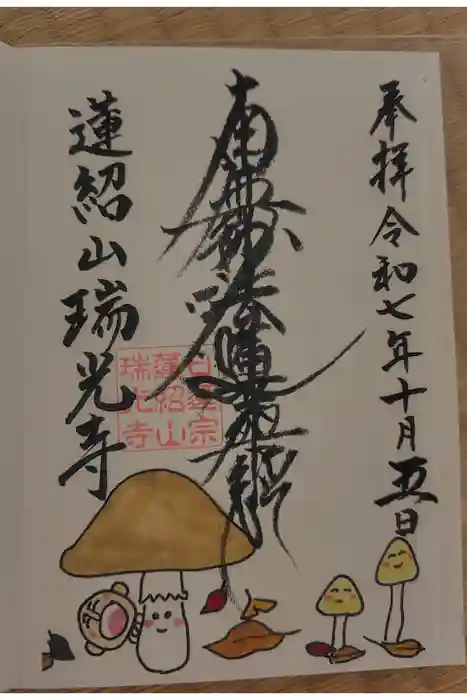 奉拝令和七年十月五日
南無妙法蓮華経
蓮紹山瑞光寺
日蓮宗
蓮紹山
瑞光寺